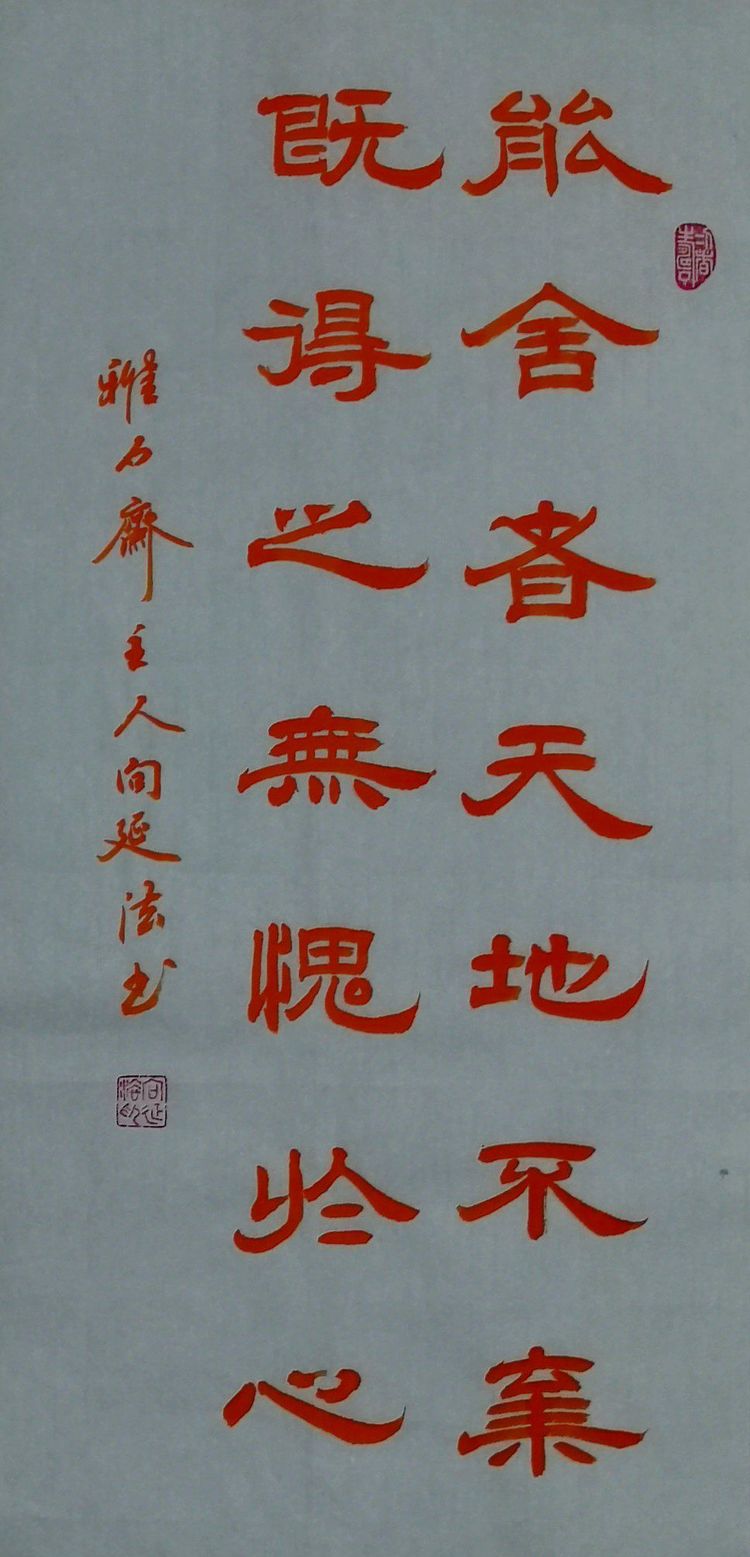 能舍者天地不棄
既得之無愧於心
雅石齋主人向延法书